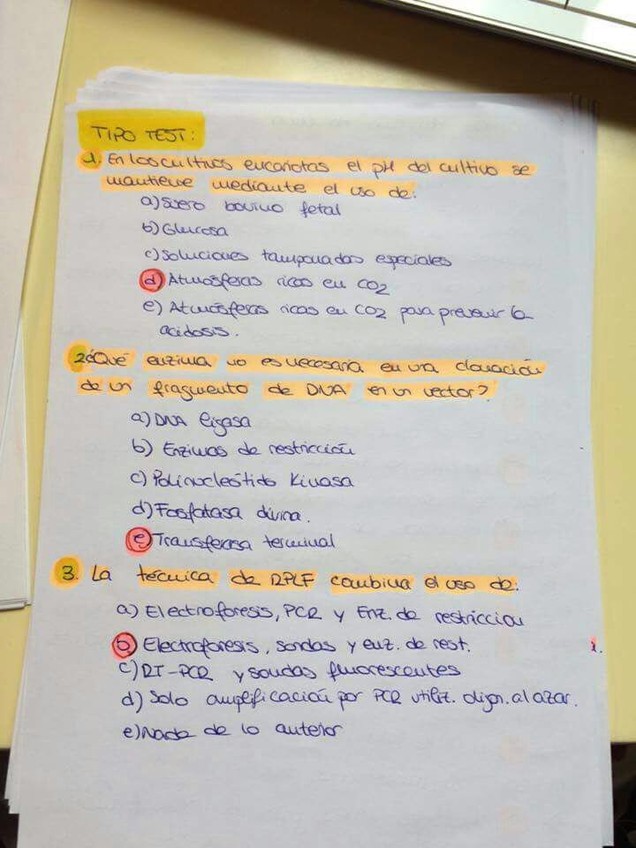 TIPO TEST:
1. En los cultivos eucariotas el pH del cultivo se
mantiene mediante el uso de:
a) Suero bovino fetal
b) Glucosa
c) Soluciones tamponadas especiales
d) Atmosferas ricas en CO2
e) Atmosferas ricas en CO2 para prevenir la
acidosis.
2 ¿Qué enzima no es necesaria en una clonación
de un fragmento de DNA en un vector?
a) DNA ligasa
b) Enzimas de restricción
c) Polinucleótido Kinasa
d) Fosfatasa
e) Transferasa terminal
3. La técnica de RPLF combina el uso de:
a) Electroforesis, PCR y Enz. de restricción
b) Electroforesis, sondas y enz. de rest.
c) RT-PCR y sondas fluorescentes
d) Solo amplificación por PCR utiliz. oligon. al azar.
e) Nada de lo anterior